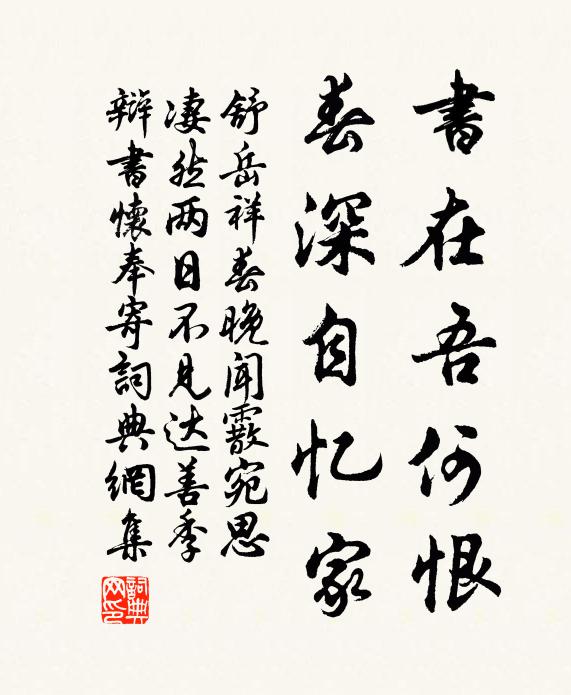 書在吾何恨
春深自忆家
舒岳祥春晚闻霰宛思
凄然两日不见达善季
辩書懷奉寄詞典網集
詞典网印